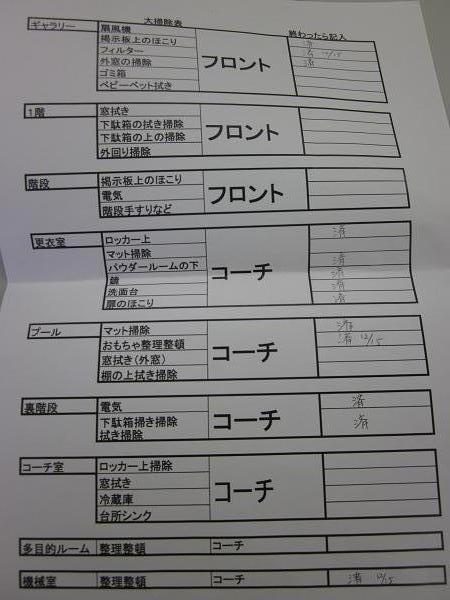 大掃除表
終わったら記入
ギャラリー
扇風機 済
掲示板上のほこり 済 12/15
フィルター 済
外窓の掃除
ゴミ箱
ベビーベット拭き
フロント
1階
窓拭き
下駄箱の拭き掃除
下駄箱の上の掃除
外回り掃除
フロント
階段
掲示板上のほこり
電気
階段手すりなど
フロント
更衣室
ロッカー上 済
マット掃除
パウダールームの下 済
鏡 済
洗面台 済
扉のほこり 済
コーチ
プール
マット掃除 済
おもちゃ整理整頓 済 12/15
窓拭き(外窓)
棚の上拭き掃除
コーチ
裏階段
電気 済
下駄箱掃き掃除 済
拭き掃除
コーチ
コーチ室
ロッカー上掃除
窓拭き
冷蔵庫
台所シンク
コーチ
多目的ルーム 整理整頓 コーチ
機械室 整理整頓 コーチ 済 12/15